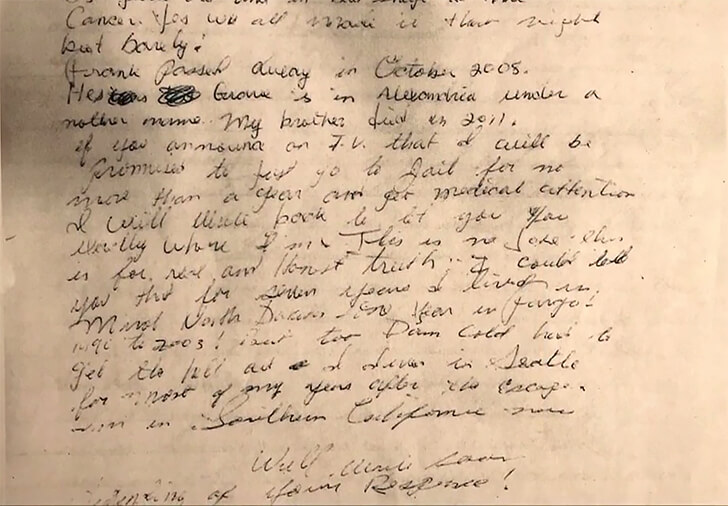 Cancer. Yes we all made it that night
but barely!
Frank passed away in October 2008.
His Grave is in Alexandria under a
nother name. My brother died in 2011.
if you announce on T.V. that I will be
promised to first go to jail for no
more than a year and get medical attention
I will write back to let you
exactly where I am. This is no Joke this
is for real and Honest truth. I could tell
you that for seven years I lived in
Minot North Dacota year in fargo!
to 2003! But too Dam Cold had to
get the hell I lived in Seattle
for most of my years after the Escape.
in Southern California now
Will write soon
of your Response!